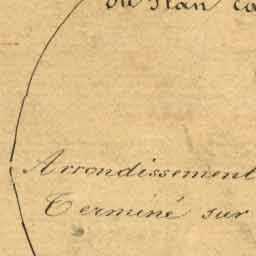 du Plan ca
Arrondissement
Terminé sur